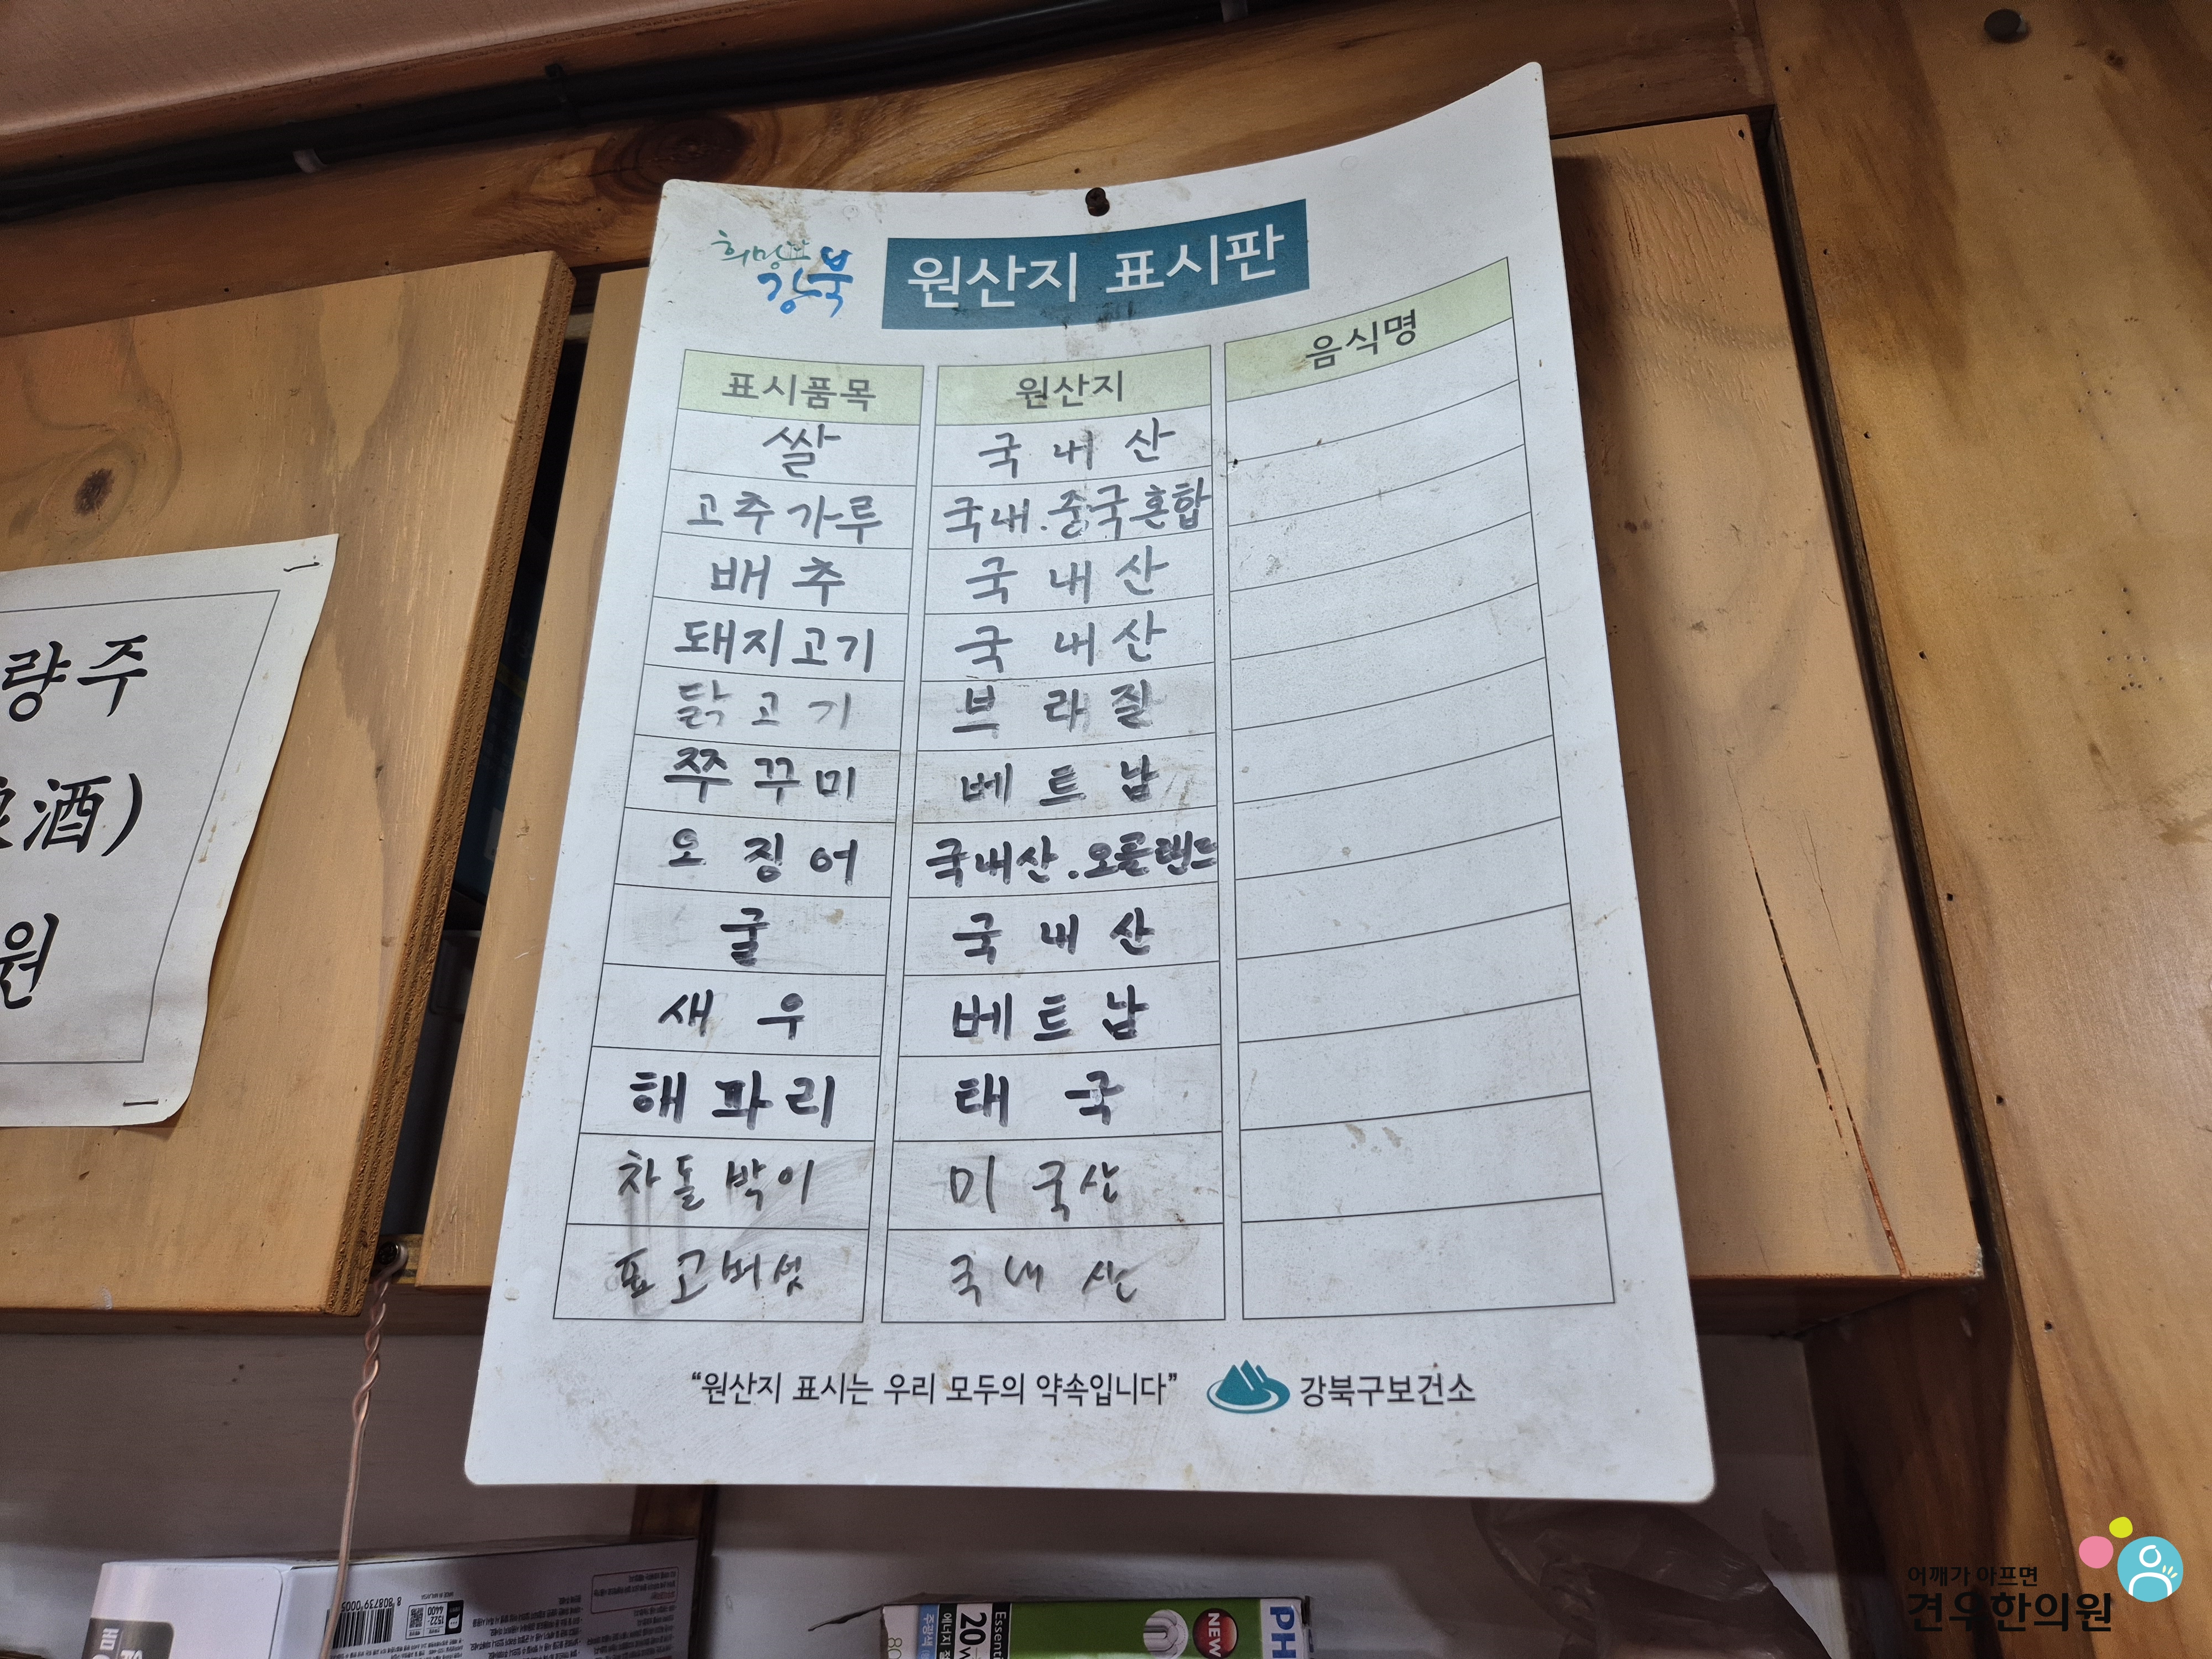 희망찬
강북
원산지 표시판
표시품목 원산지 음식명
쌀 국내산
고추가루 국내.중국혼합
배추 국내산
돼지고기 국내산
닭고기 브라질
쭈꾸미 베트남
오징어 국내산.오클랜드
굴 국내산
새우 베트남
해파리 태국
차돌박이 미국산
표고버섯 국내산
"원산지 표시는 우리 모두의 약속입니다" 강북구보건소
량주
酒)
원
8 808739 0005
1522-
4400
주광색
에너지
20w
Essenti
NEW
PH
어깨가 아프면
견우한의원